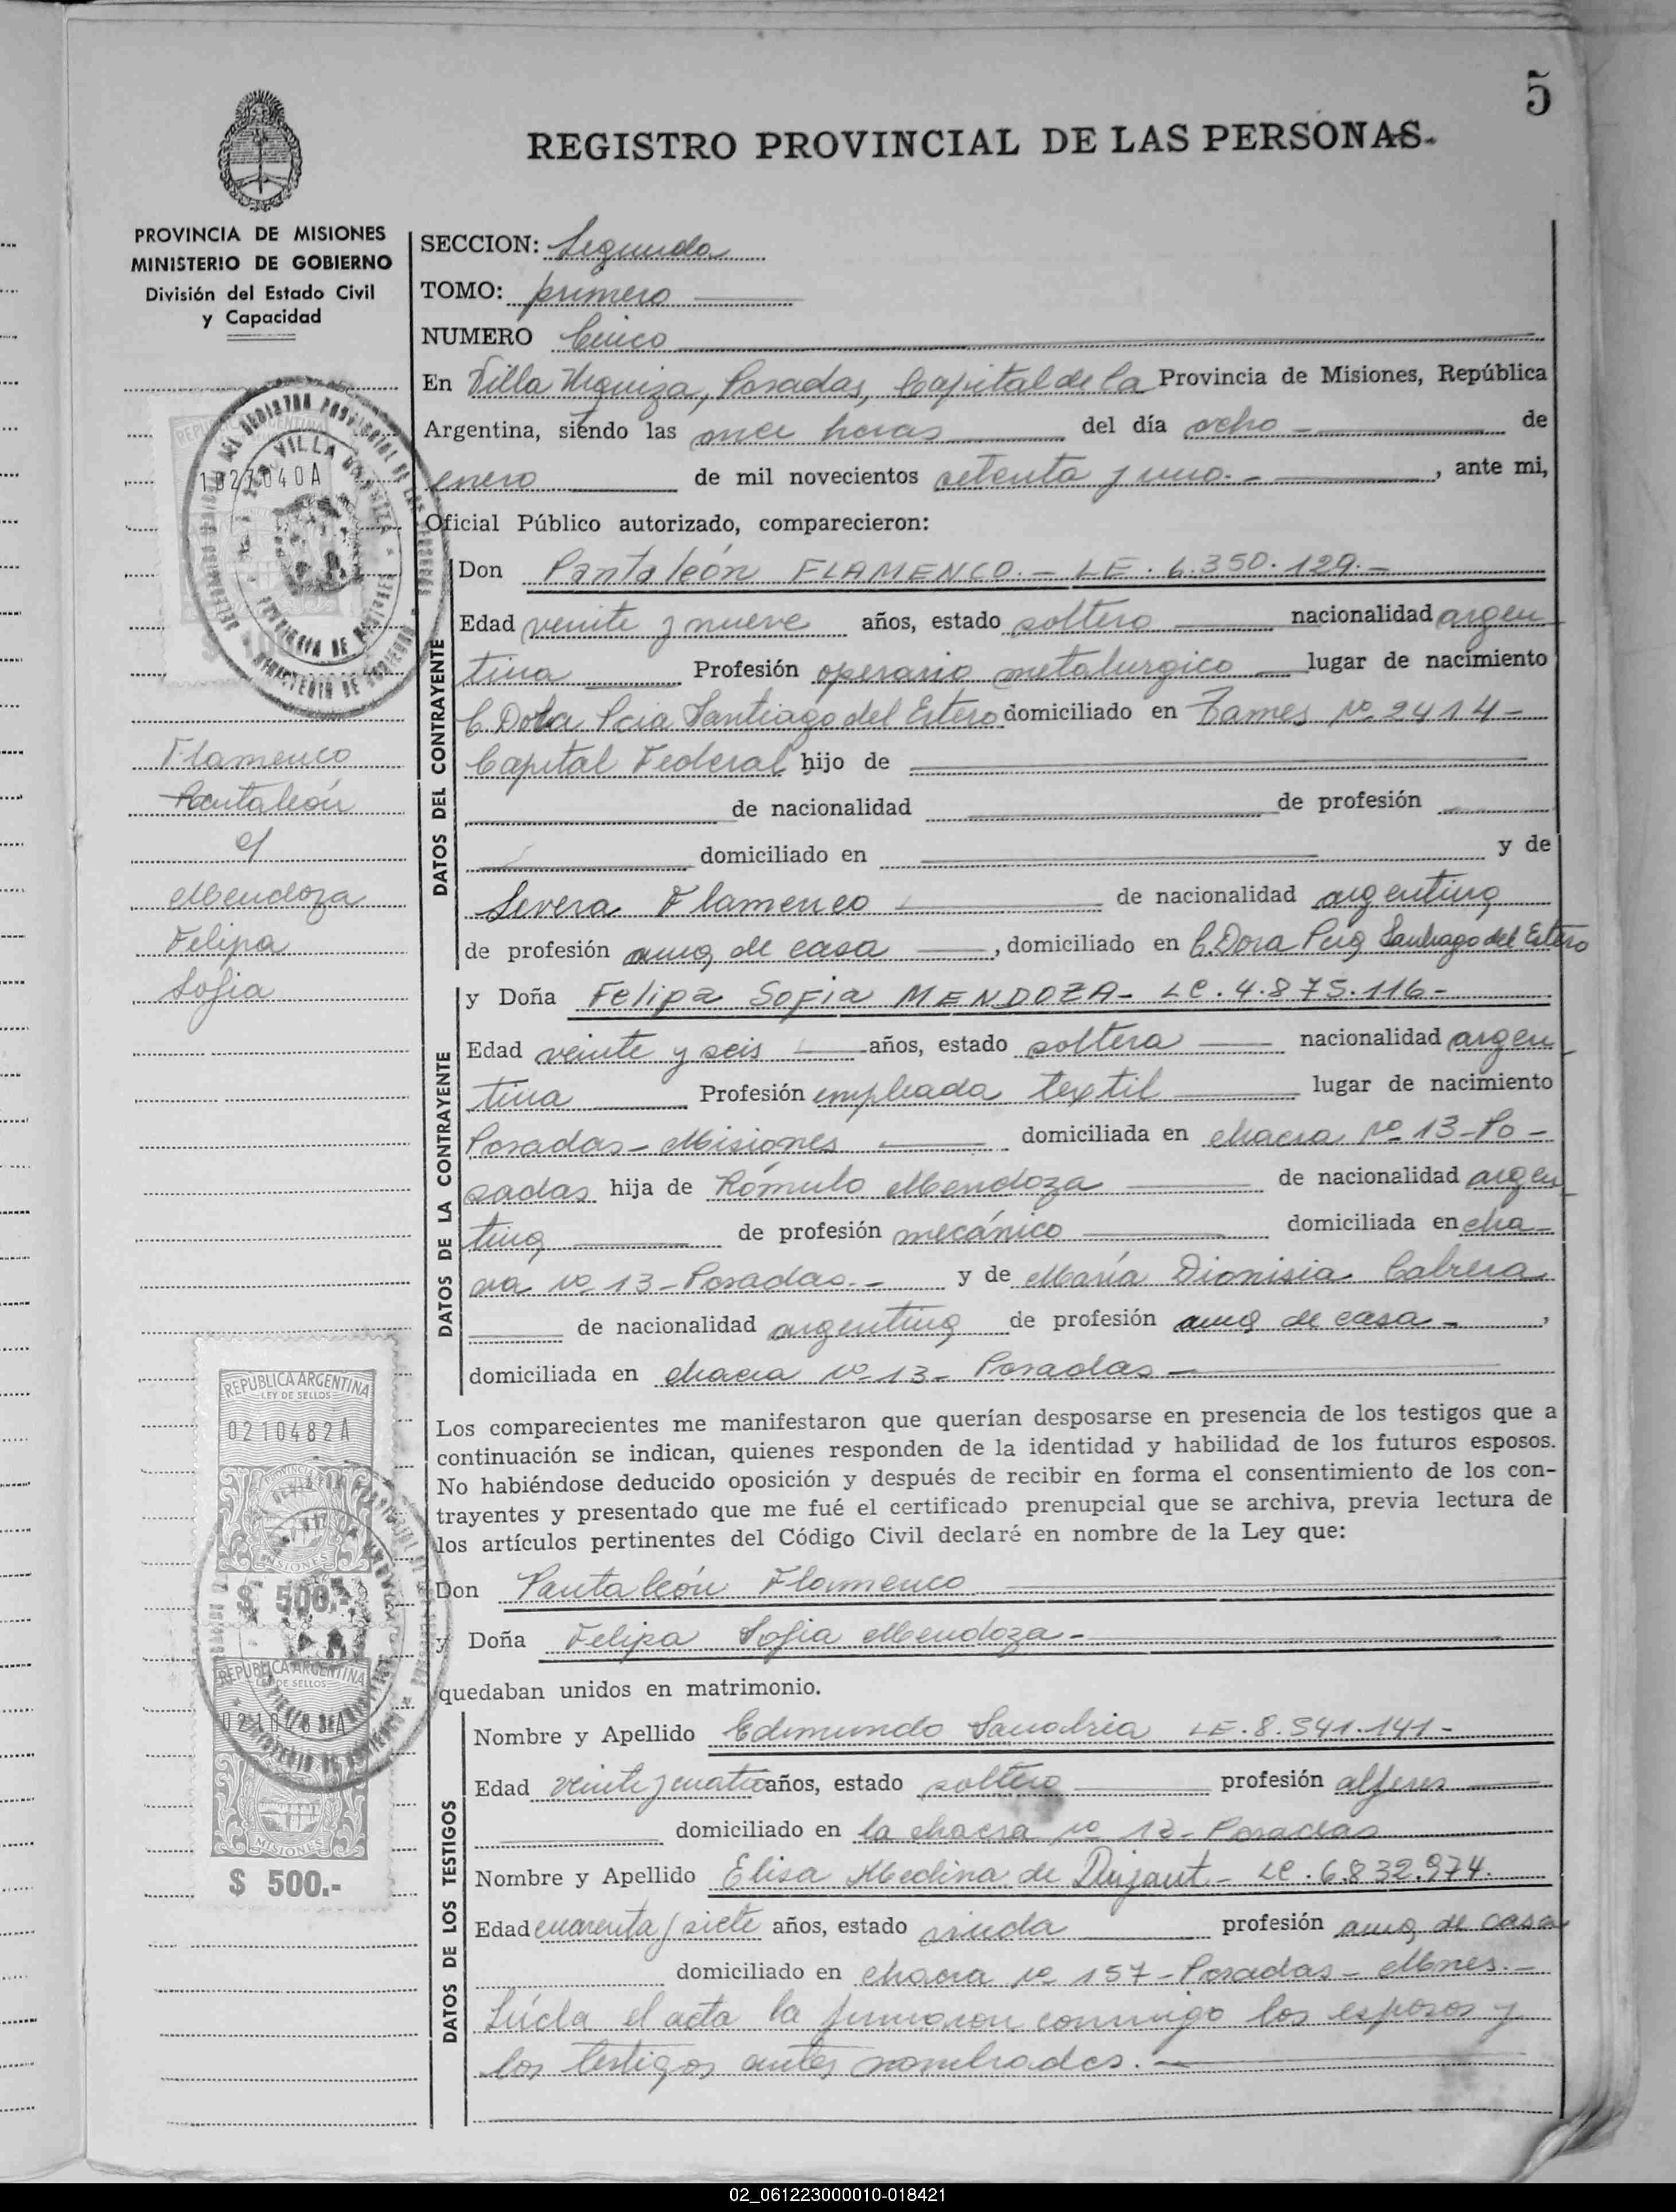 5
REGISTRO PROVINCIAL DE LAS PERSONAS.
PROVINCIA DE MISIONES
MINISTERIO DE GOBIERNO
División del Estado Civil
y Capacidad
SECCION: Segunda
TOMO: primero
NUMERO Cinco
En Villa Urquiza, Posadas, Capital de la Provincia de Misiones, República
Argentina, siendo las once horas del día ocho de
enero de mil novecientos setenta y uno.- , ante mi,
Oficial Público autorizado, comparecieron:
1027040A
Flamenco
Pantaleón
y
Mendoza
Felipa
Sofia
DATOS DEL CONTRAYENTE
Don Pantaleón FLAMENCO.- LE. 6.350.129.-
Edad veinte y nueve años, estado soltero nacionalidad argen
tina Profesión operario metalurgico lugar de nacimiento
C. Dora Pcia Santiago del Estero domiciliado en Tames Nº 2414-
Capital Federal hijo de
de nacionalidad de profesión
domiciliado en y de
Severa Flamenco de nacionalidad argentina
de profesión ama de casa , domiciliado en C. Dora Pcia Santiago del Estero
DATOS DE LA CONTRAYENTE
y Doña Felipa Sofia MENDOZA- LC. 4.875.116-
Edad veinte y seis años, estado soltera nacionalidad argen
tina Profesión empleada textil lugar de nacimiento
Posadas- Misiones domiciliada en chacra Nº 13-Po-
sadas hija de Rómulo Mendoza de nacionalidad argen
tina de profesión mecánico domiciliada en cha-
cra Nº 13-Posadas.- y de María Dionisia Cabrera
de nacionalidad argentina de profesión ama de casa - ,
domiciliada en chacra Nº 13- Posadas-
Los comparecientes me manifestaron que querían desposarse en presencia de los testigos que a
continuación se indican, quienes responden de la identidad y habilidad de los futuros esposos.
No habiéndose deducido oposición y después de recibir en forma el consentimiento de los con-
trayentes y presentado que me fué el certificado prenupcial que se archiva, previa lectura de
los artículos pertinentes del Código Civil declaré en nombre de la Ley que:
Don Pantaleón Flamenco
y Doña Felipa Sofia Mendoza-
quedaban unidos en matrimonio.
REPUBLICA ARGENTINA
LEY DE SELLOS
0210482A
MISIONES
$ 500.-
REPUBLICA ARGENTINA
LEY DE SELLOS
MISIONES
$ 500.-
DATOS DE LOS TESTIGOS
Nombre y Apellido Edmundo Sanabria LE. 8.541.141-
Edad veinte y cuatro años, estado soltero profesión alferes
domiciliado en la chacra Nº 13- Posadas
Nombre y Apellido Elisa Medina de Dujaut- LC. 6.832.974.
Edad cuarenta y siete años, estado viuda profesión ama de casa
domiciliado en chacra Nº 157-Posadas- Mnes.-
Leída el acta la firmaron conmigo los esposos y
los testigos antes nombrados.-
02_061223000010-018421